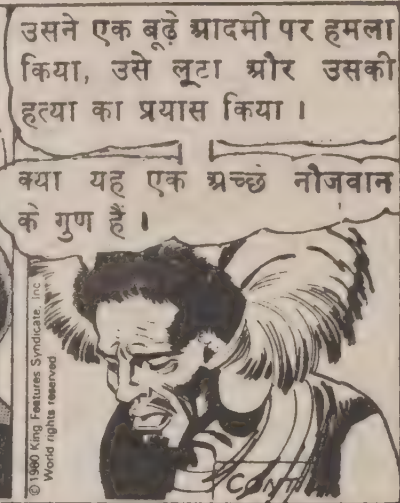 उसने एक बूढ़े आदमी पर हमला
किया, उसे लूटा और उसकी
हत्या का प्रयास किया ।
क्या यह एक अच्छे नौजवान
के गुण हैं ।
© 1980 King Features Syndicate, Inc
World rights reserved
CONT